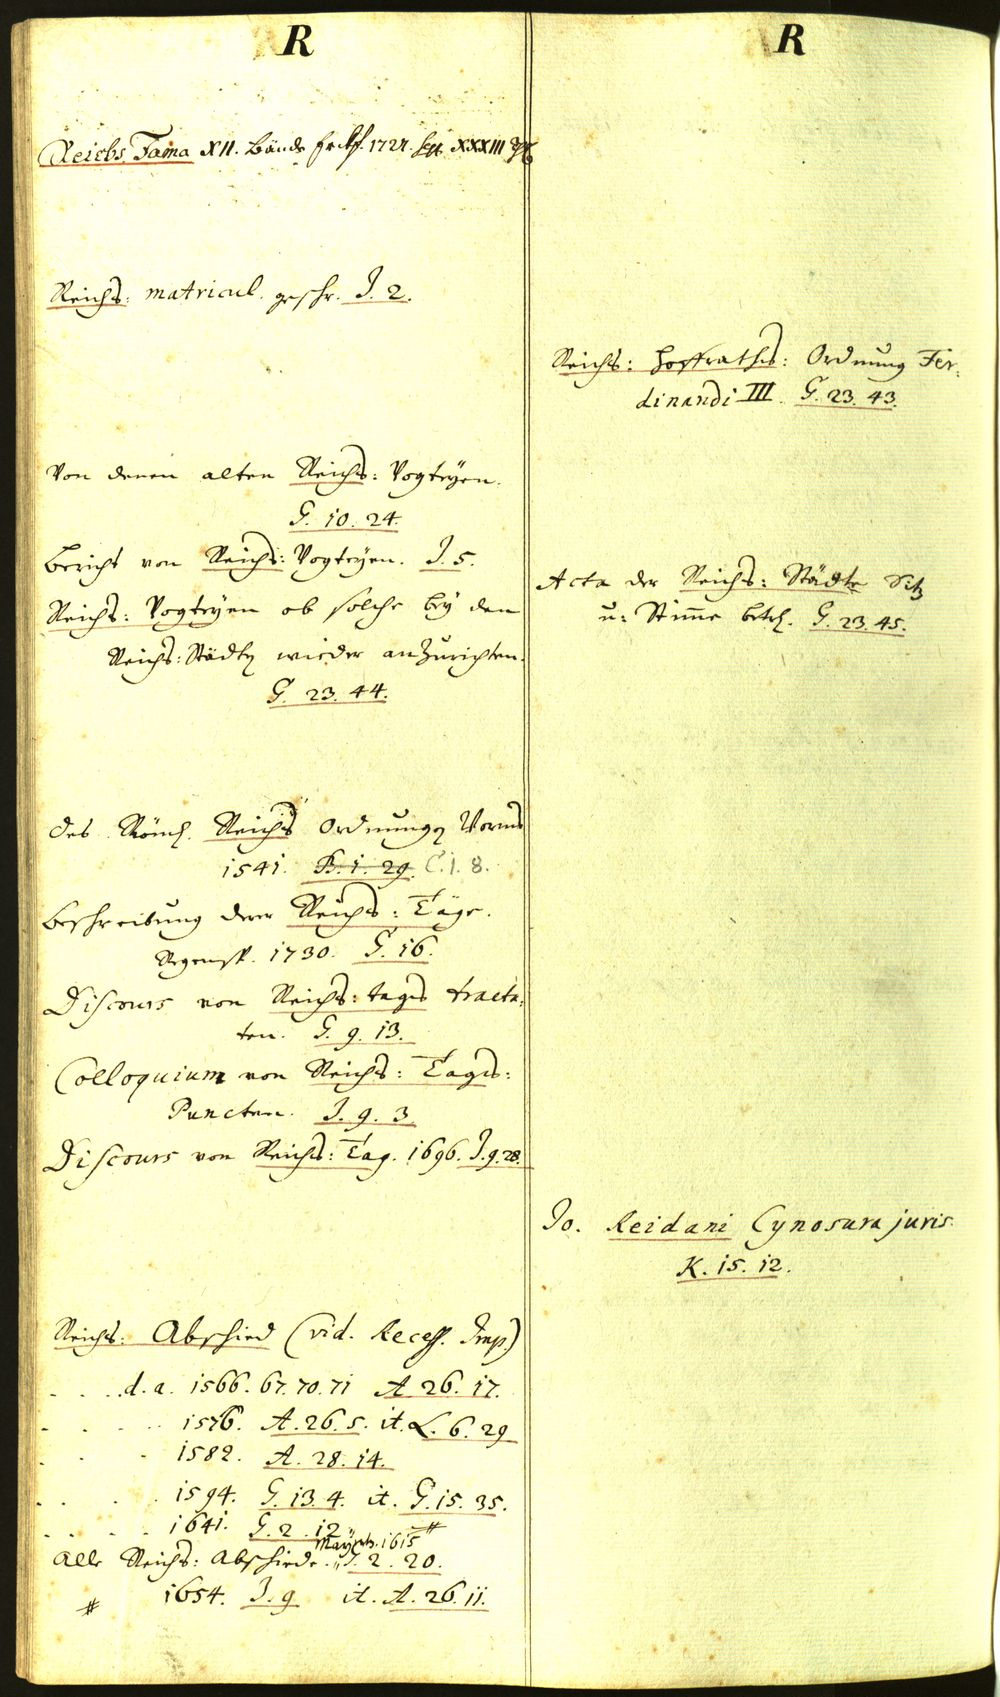 R
Reichs Fama XII. Bände Frckf. 1727. seq. XXXIII
Reichs: matricul. geschr. J. 2.
Von denen alten Reichs: Vogteÿen.
G. 10. 24.
Bericht von Reichs: Vogteÿen. J. 5.
Reichs: Vogteÿen ob solche beÿ den
Reichs: Städten wieder anzurichten.
G. 23. 44.
des Römisch. Reichs Ordnungen Worms
1541. B. 1. 29. C. 1. 8.
Beschreibung derer Reichs: Täge.
Regensp. 1730. G. 16.
Discours von Reichs: tags tracta:
ten. G. 9. 13.
Colloquium von Reichs: Tags:
Puncten. J. 9. 3
Discours von Reichs: Tag. 1696. J. 9. 28.
Reichs: Abschied (vid. Recess. Imp.)
. . . . d. a. 1566. 67. 70. 71 A 26. 17.
. . . . 1576. A. 26. 5. it. L. 6. 29
. . . 1582. A. 28. 14.
. . . . 1594. G. 13. 4. it. G. 15. 35.
. . . . 1641. G. 2. 12. #
Maÿntz. 1615
Alle Reichs: Abschiede. J. 2. 20.
# 1654. J. 9 it. A. 26. 11.
R
Reichs: Hoffraths: Ordnung Fer:
dinandi III. G. 23. 43.
Acta der Reichs: Städte Sitz
u: Stimme betrf. G. 23. 45.
Jo. Reidani Cynosura juris.
K. 15. 12.